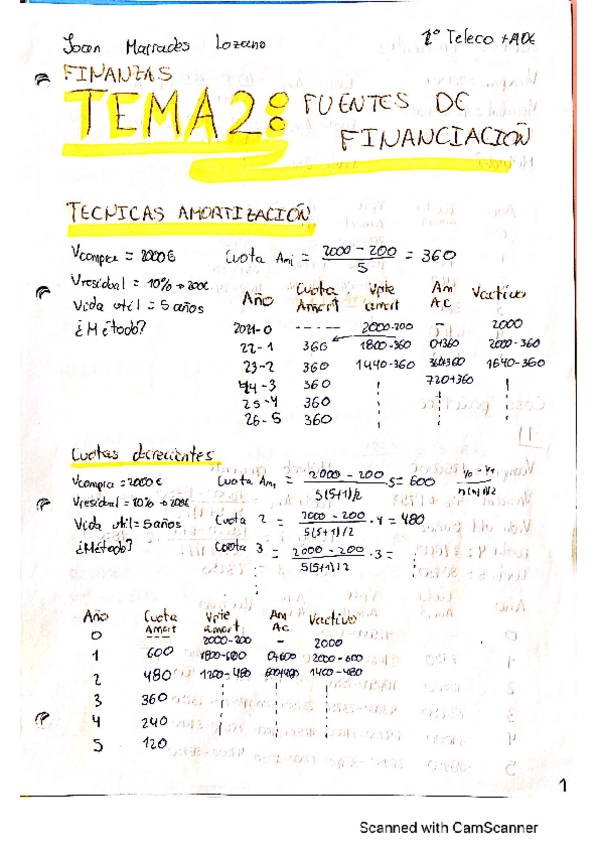 Joan Marrades Lozano 2º Teleco + ADE
FINANZAS
TEMA 2: FUENTES DE
FINANCIACIÓN
TECNICAS AMORTIZACIÓN
Vcompra = 2000€ Cuota Am₁ = (2000 - 200)/5 = 360
Vresidual = 10% → 200€
Vida util = 5 años
¿Método?
Año Cuota Amort Vpte amort Am AC Vactivo
2021-0 ----- 2000-200 - 2000
22-1 360 1800-360 0+360 2000-360
23-2 360 1440-360 360+360 1640-360
24-3 360 720+360
25-4 360
26-5 360
Cuotas decrecientes
Vcompra = 2000€ Cuota Am₁ = (2000 - 200)/(5(5+1)/2) · 5 = 600
Vresidual = 10% → 200€
Vida util = 5 años Cuota 2 = (2000 - 200)/(5(5+1)/2) · 4 = 480
¿Método? Cuota 3 = (2000 - 200)/(5(5+1)/2) · 3 =
Año Cuota Amort Vpte amort Am AC Vactivo
0 ---- 2000-200 - 2000
1 600 1800-600 0+600 2000-600
2 480 1200-480 600+480 1400-480
3 360
4 240
5 120
1
Scanned with CamScanner